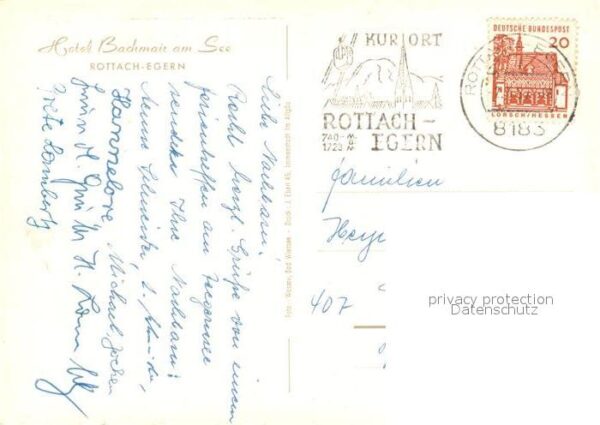 Hotel Bachmair am See
ROTTACH-EGERN
KURORT
ROTTACH-
EGERN
740 m
1723 m
DEUTSCHE BUNDESPOST
20
LORSCH/HESSEN
8183
Liebe Nachbarn!
Recht herzl. Grüße von einem
Ferientreffen am Tegernsee
senden Ihre Nachbarn:
Hannelore, Michael, Jochen
Grete Lamberty
Familien
Heyn
407
privacy protection
Datenschutz